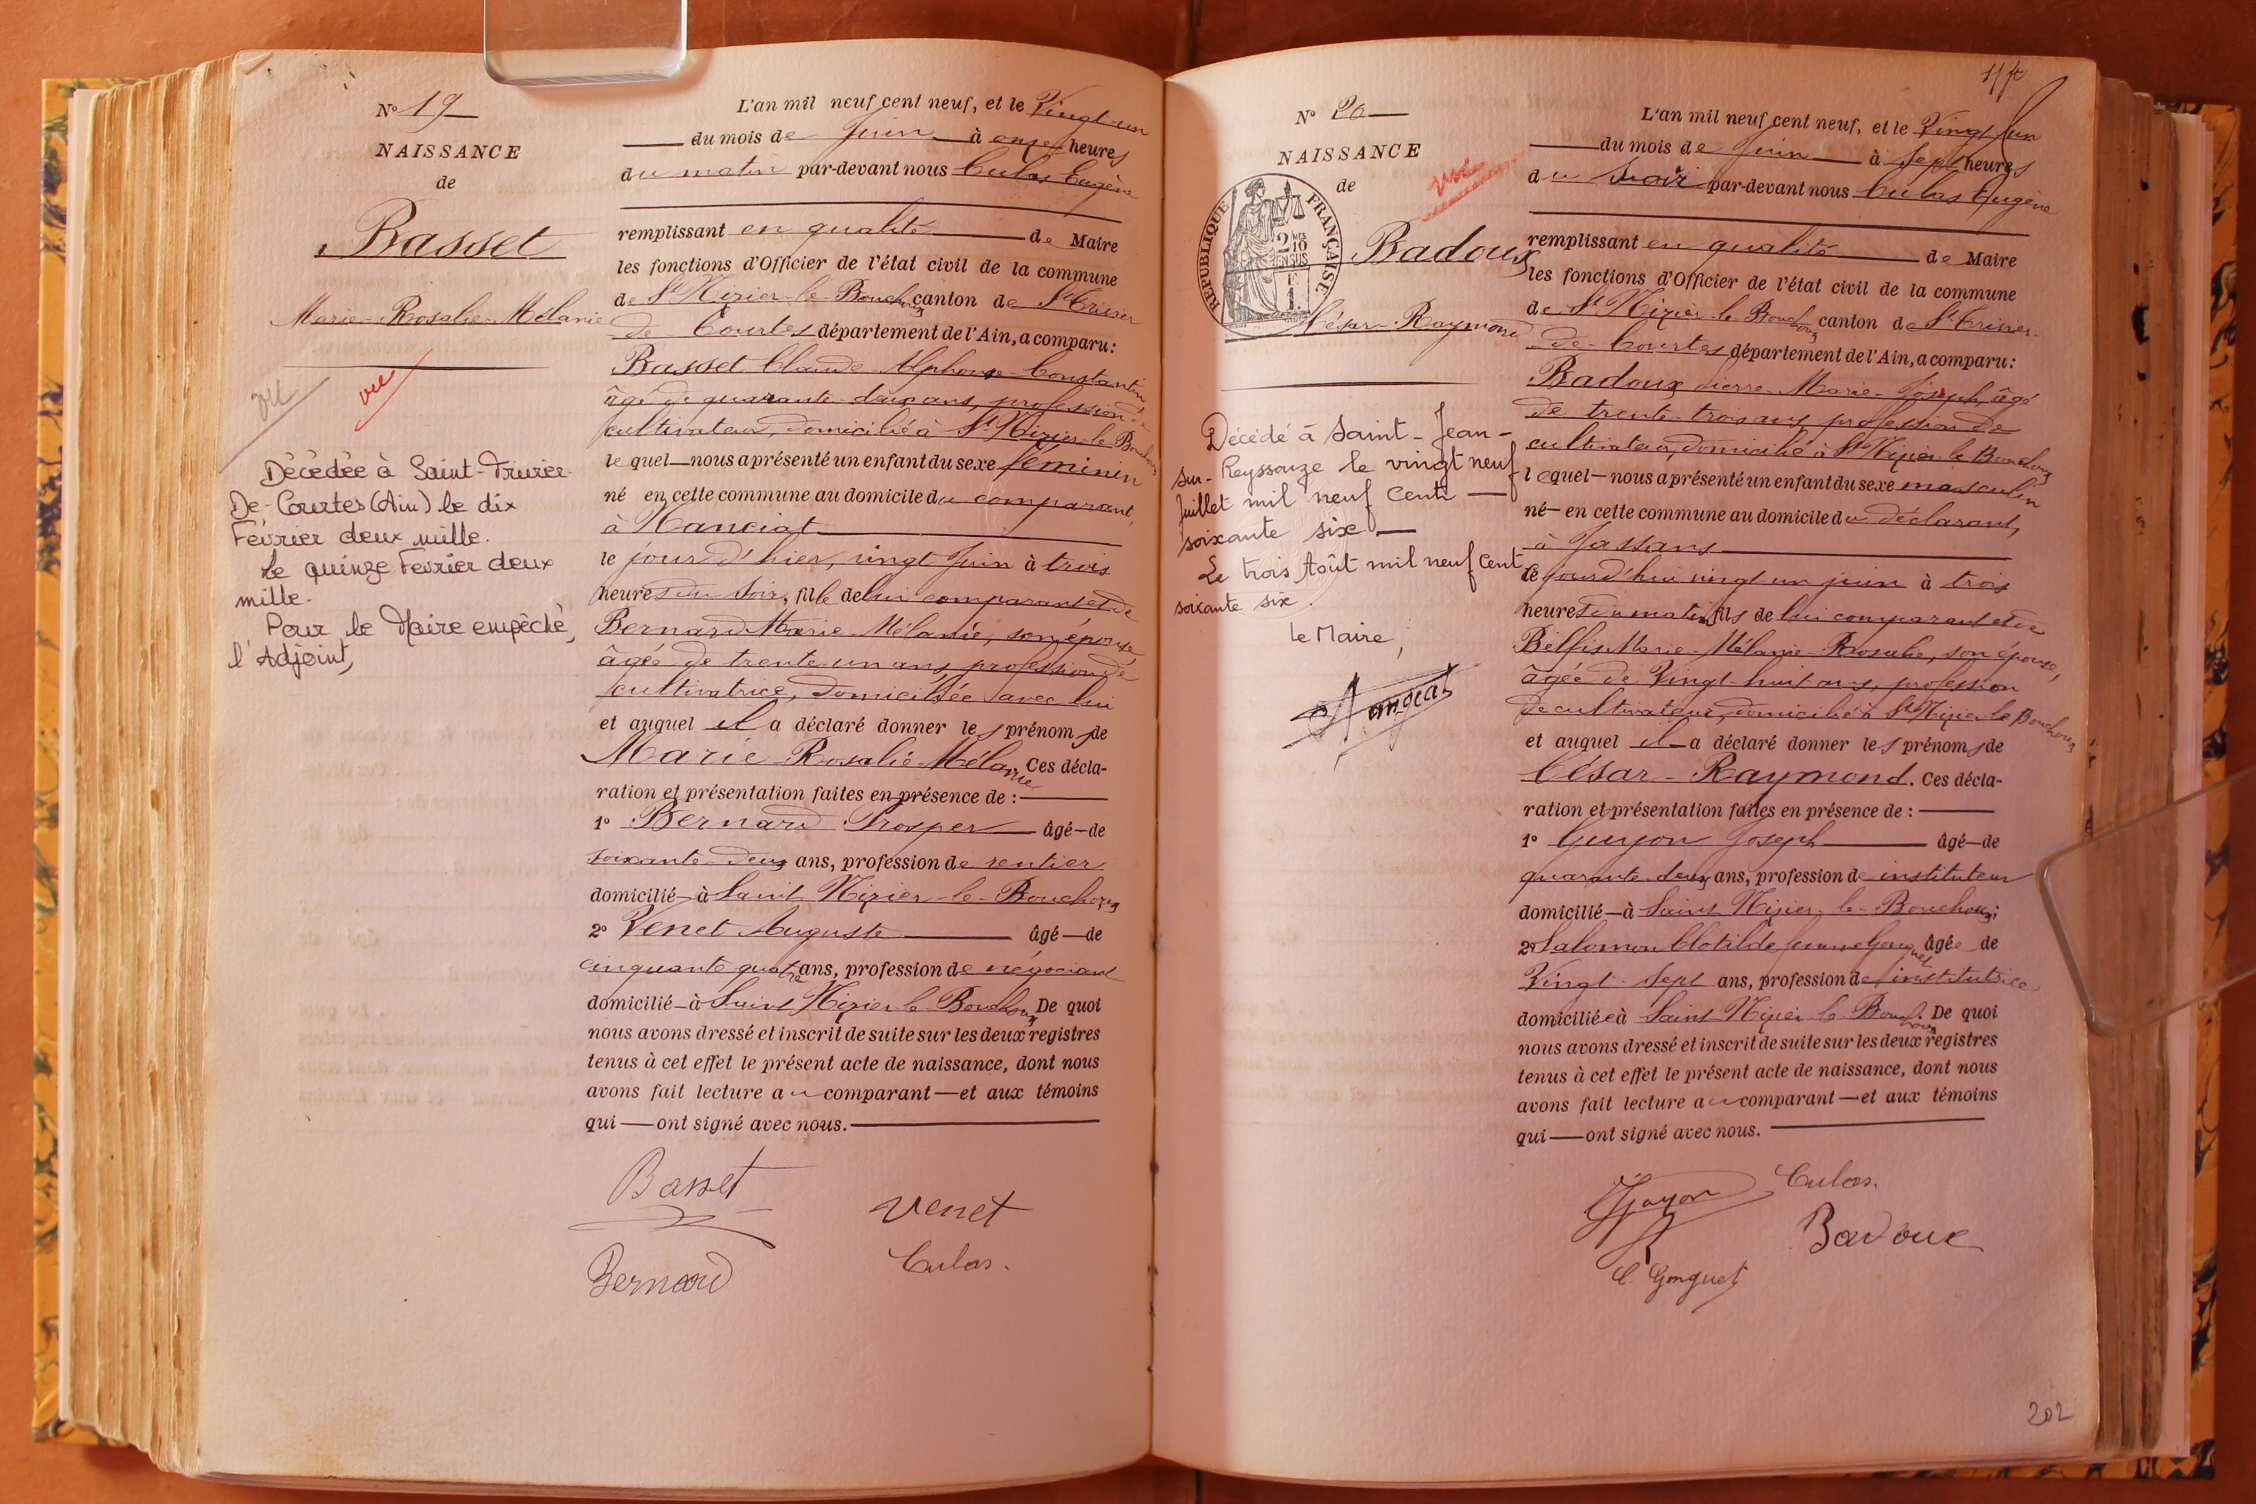 N° 19
NAISSANCE
de
Basset
Marie-Rosalie-Mélanie
vu
vu
Décédée à Saint-Trivier-
De-Courtes (Ain) le dix
Février deux mille.
Le quinze Février deux
mille.
Pour le Maire empêché,
l'Adjoint,
L'an mil neuf cent neuf, et le Vingt-un
du mois de Juin à onze heures
du matin par-devant nous Culas Eugène
remplissant en qualité de Maire
les fonctions d'Officier de l'état civil de la commune
de St Nizier-le-Bouchoux canton de St Trivier
de-Courtes département de l'Ain, a comparu :
Basset Claude Alphonse Constantin,
âgé de quarante-deux ans, profession de
cultivateur, domicilié à St Nizier-le-Bouchoux
lequel nous a présenté un enfant du sexe féminin
né en cette commune au domicile du comparant,
à Manciat
le jour d'hier, vingt Juin à trois
heures du soir, fille de lui comparant et de
Bernard Marie Mélanie, son épouse,
âgée de trente-un ans, profession de
cultivatrice, domiciliée avec lui
et auquel il a déclaré donner les prénoms de
Marie-Rosalie-Mélanie Ces décla-
ration et présentation faites en présence de :
1° Bernard Prosper âgé de
soixante-deux ans, profession de rentier
domicilié à Saint Nizier-le-Bouchoux
2° Venet Auguste âgé de
cinquante quatre ans, profession de négociant
domicilié à Saint Nizier-le-Bouchoux De quoi
nous avons dressé et inscrit de suite sur les deux registres
tenus à cet effet le présent acte de naissance, dont nous
avons fait lecture au comparant et aux témoins
qui ont signé avec nous.
Basset
Venet
Bernard
Culas.
N° 20
NAISSANCE
de
vu
REPUBLIQUE FRANÇAISE
Badoux
César-Raymond
Décédé à Saint-Jean-
sur-Reyssouze le vingt neuf
juillet mil neuf cent
soixante six
Le trois Août mil neuf cent
soixante six.
Le Maire,
L'an mil neuf cent neuf, et le Vingt un
du mois de Juin à sept heures
du soir par-devant nous Culas Eugène
remplissant en qualité de Maire
les fonctions d'Officier de l'état civil de la commune
de St Nizier-le-Bouchoux canton de St Trivier-
de-Courtes département de l'Ain, a comparu :
Badoux Pierre-Marie-Joseph, âgé
de trente-trois ans, profession de
cultivateur, domicilié à St Nizier-le-Bouchoux
lequel nous a présenté un enfant du sexe masculin
né en cette commune au domicile du déclarant,
à Jassans
le jourd'hui vingt un juin à trois
heures du matin fils de lui comparant et de
Marie-Mélanie-Rosalie, son épouse,
âgée de Vingt-huit ans, profession
de cultivateur, domicilié à St Nizier-le-Bouchoux
et auquel il a déclaré donner les prénoms de
César-Raymond. Ces décla-
ration et présentation faites en présence de :
1° Guyon Joseph âgé de
quarante-deux ans, profession de instituteur
domicilié à Saint Nizier-le-Bouchoux ;
2° Salomon Clotilde femme Gonguet âgée de
Vingt-sept ans, profession de institutrice
domiciliée à Saint Nizier-le-Bouchoux De quoi
nous avons dressé et inscrit de suite sur les deux registres
tenus à cet effet le présent acte de naissance, dont nous
avons fait lecture au comparant et aux témoins
qui ont signé avec nous.
Culas.
JGuyon
Badoux
C. Gonguet
202